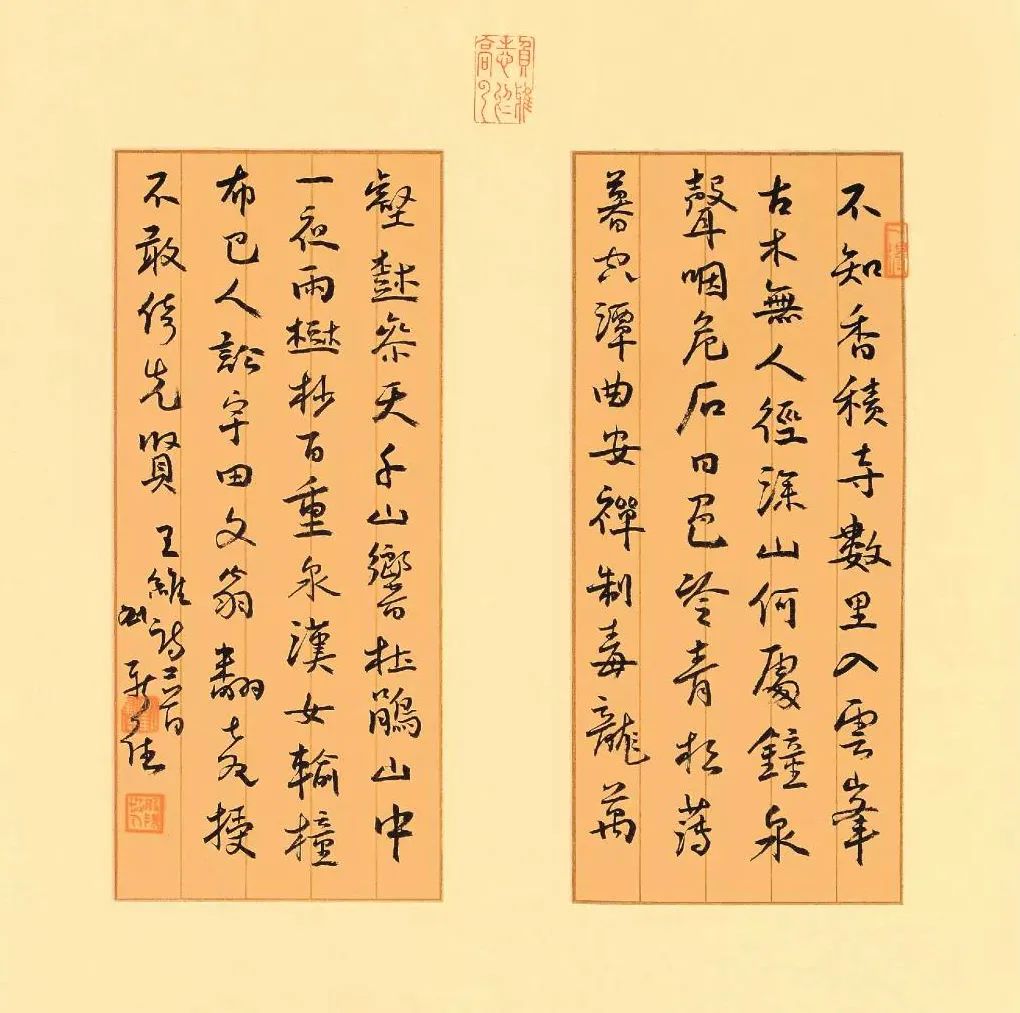 不知香積寺數里入雲峯
古木無人徑深山何處鐘泉
聲咽危石日色冷青松薄
暮空潭曲安禪制毒龍萬
壑樹參天千山響杜鵑山中
一夜雨樹杪百重泉漢女輸橦
布巴人訟芋田文翁翻教授
不敢倚先賢 王維詩二首